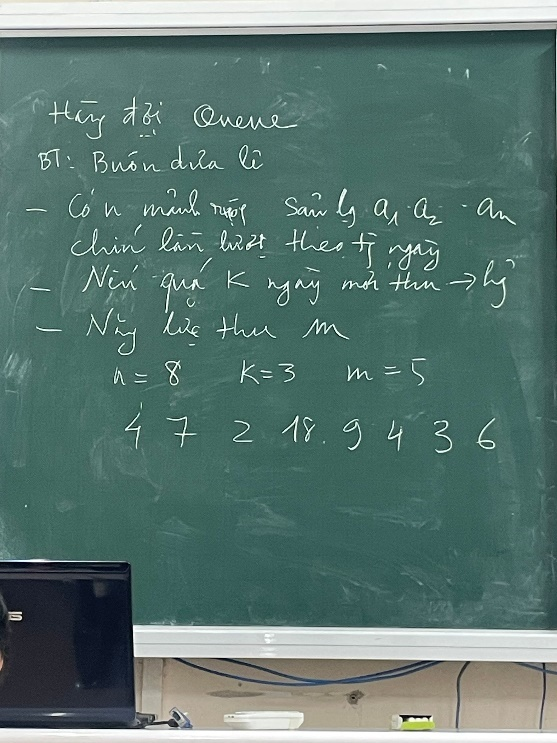 Hàng đợi Queue
BT: Buôn dưa lê
- Có n mảnh ruộng sản lg a₁ a₂ . an
chín lần lượt theo tg ngày
- Nếu quá K ngày mới thu → hỷ
- Năng lực thu m
n = 8 K=3 m = 5
4 7 2 18. 9 4 3 6